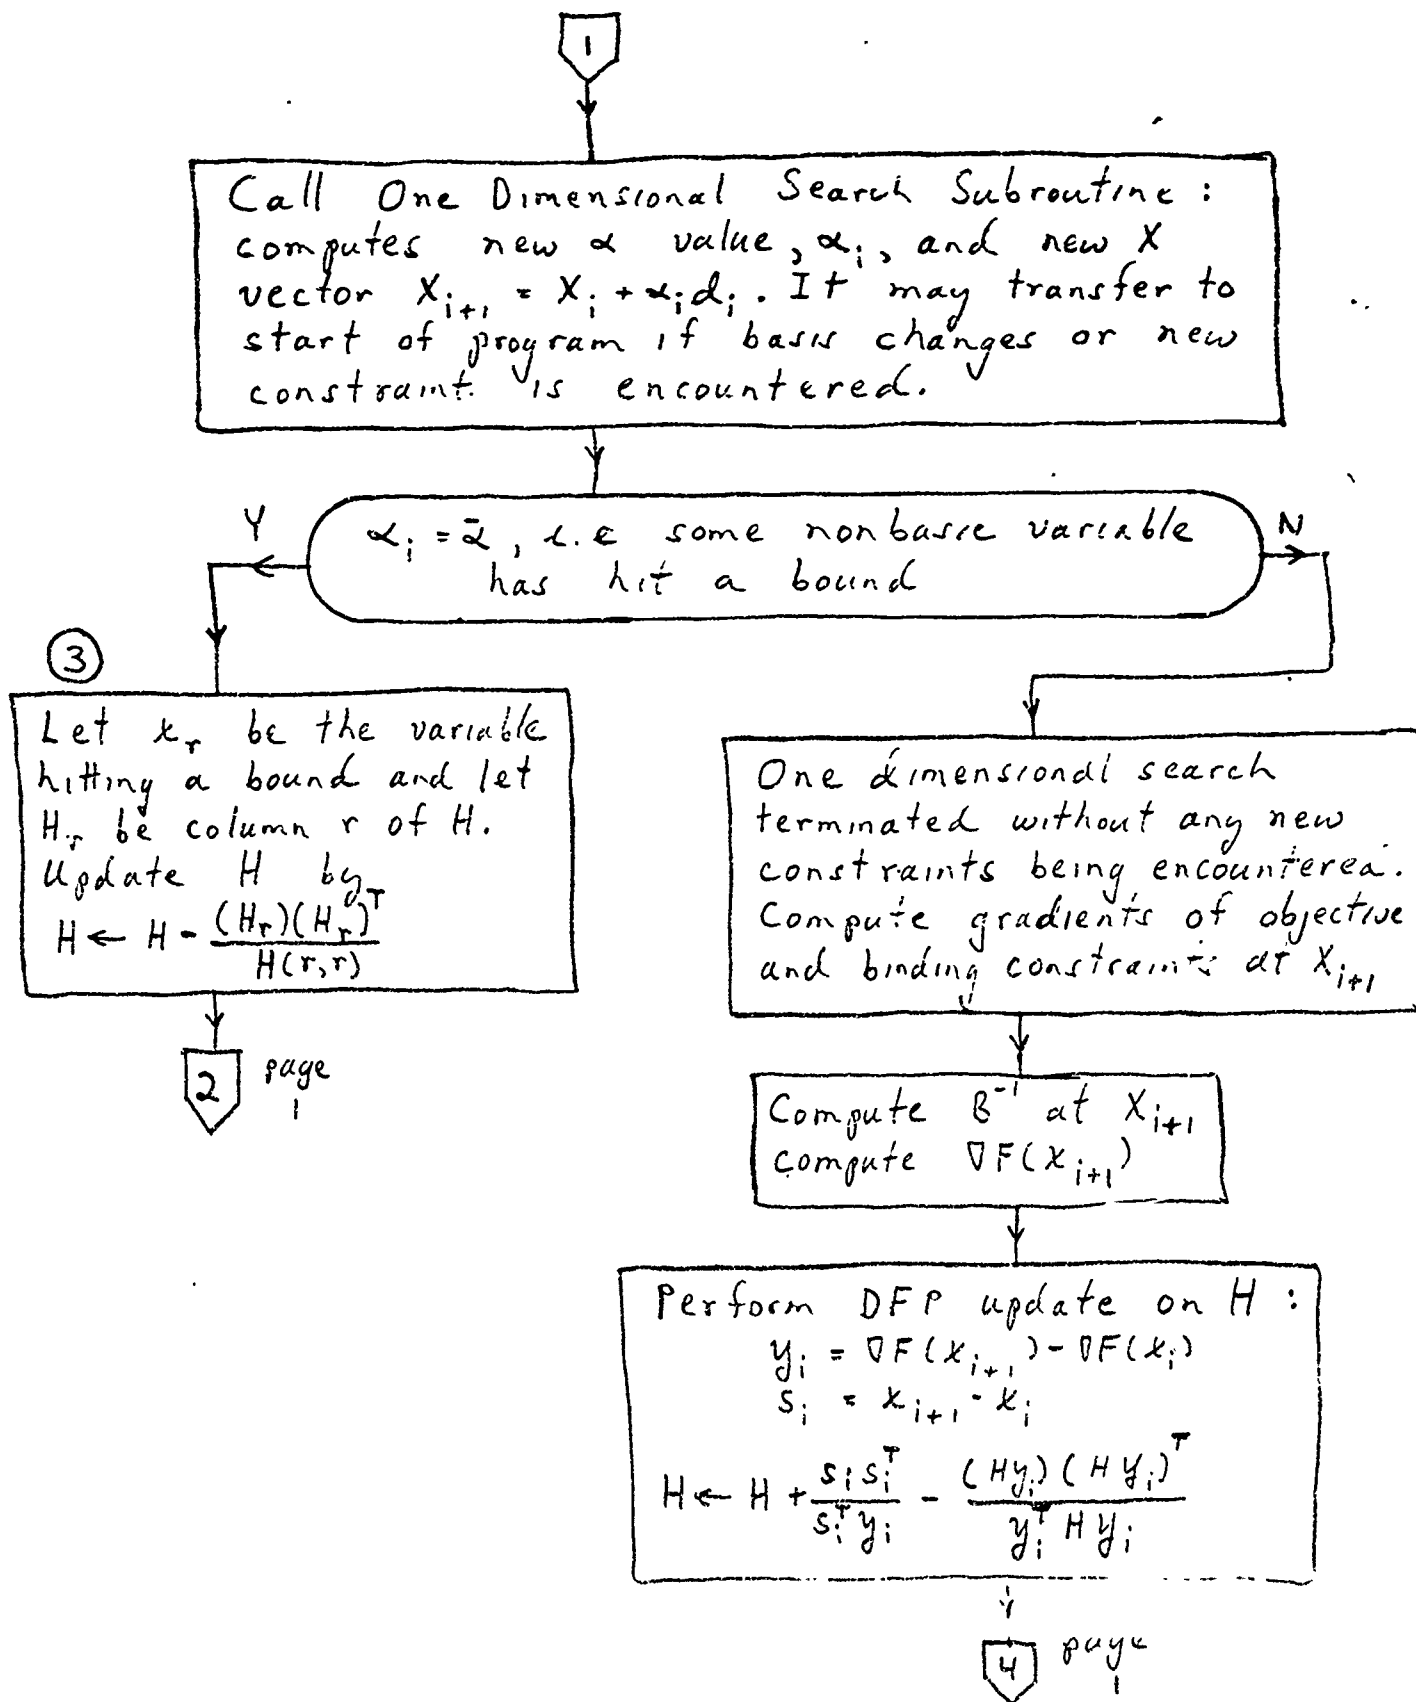 1
Call One Dimensional Search Subroutine :
computes new α value, αᵢ, and new X
vector Xᵢ₊₁ = Xᵢ + αᵢdᵢ. It may transfer to
start of program if basis changes or new
constraint is encountered.
Y
αᵢ = ᾱ, i.e some nonbasic variable
has hit a bound
N
3
Let xᵣ be the variable
hitting a bound and let
Hᵣ be column r of H.
Update H by
H ← H - (Hᵣ)(Hᵣ)ᵀ / H(r,r)
2 page
1
One dimensional search
terminated without any new
constraints being encountered.
Compute gradients of objective
and binding constraints at Xᵢ₊₁
Compute B⁻¹ at Xᵢ₊₁
compute ∇F(xᵢ₊₁)
Perform DFP update on H :
yᵢ = ∇F(xᵢ₊₁) - ∇F(xᵢ)
sᵢ = xᵢ₊₁ - xᵢ
H ← H + sᵢsᵢᵀ / sᵢᵀyᵢ - (Hyᵢ)(Hyᵢ)ᵀ / yᵢᵀHyᵢ
4 page
1